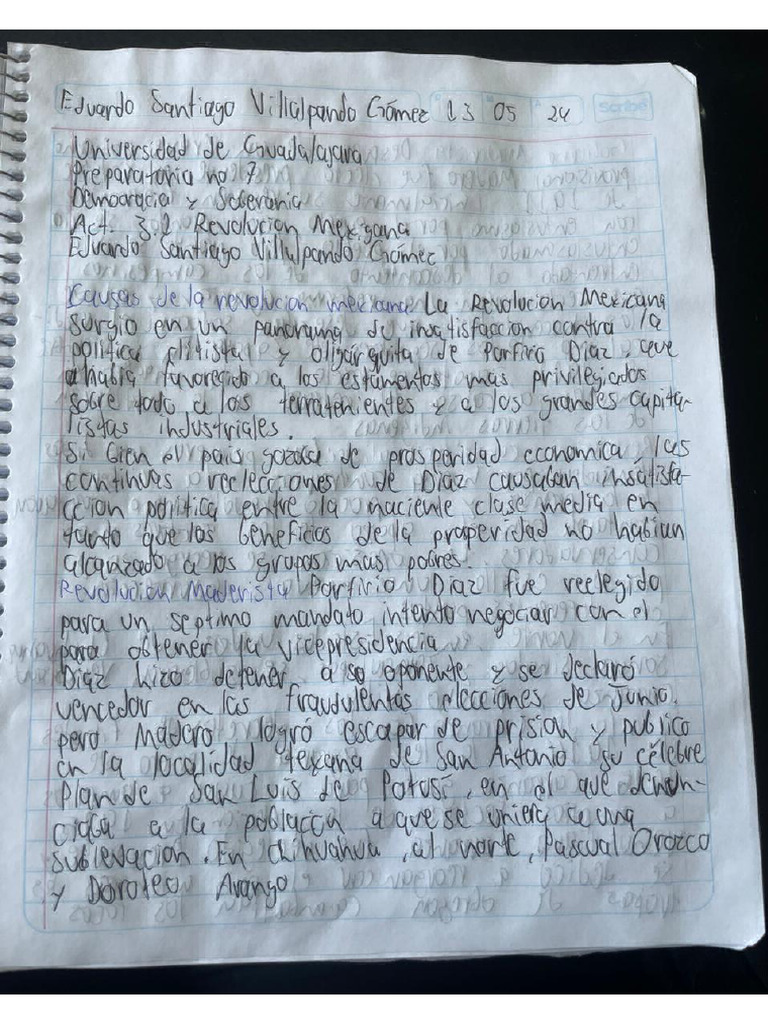 Eduardo Santiago Villalpando Gómez 13 05 24
Scribe
Universidad de Guadalajara
Preparatoria no 7
Democracia y Soberania
Act. 3.2 Revolucion Mexicana
Eduardo Santiago Villalpando Gómez
Causas de la revolucion mexicana La Revolucion Mexicana
surgio en un panorama de insatisfaccion contra la
politica elitista y oligárquita de Porfirio Diaz, que
habia favorecido a los estamentos mas privilegiados
sobre todo a los terratenientes y a los grandes capita-
listas industriales.
Si bien el pais gozase de prosperidad economica, las
continuas reelecciones de Diaz causaban insatisfa-
ccion politica entre la naciente clase media en
tanto que los beneficios de la prosperidad no habian
alcanzado a los grupos mas pobres.
Revolucion Maderista Porfirio Diaz fue reelegido
para un septimo mandato intento negociar con el
para obtener la vicepresidencia
Diaz hizo detener a so oponente y se declaró
vencedor en las fraudulentas elecciones de Junio.
pero Madero logró escapar de prision y publico
en la localidad texana de San Antonio su célebre
Plan de San Luis de Potosí, en el que denun-
ciaba a la poblaccn a que se uniera a una
sublevacion. En chihuahua, al norte, Pascual Orozco
y Doroteo Arango